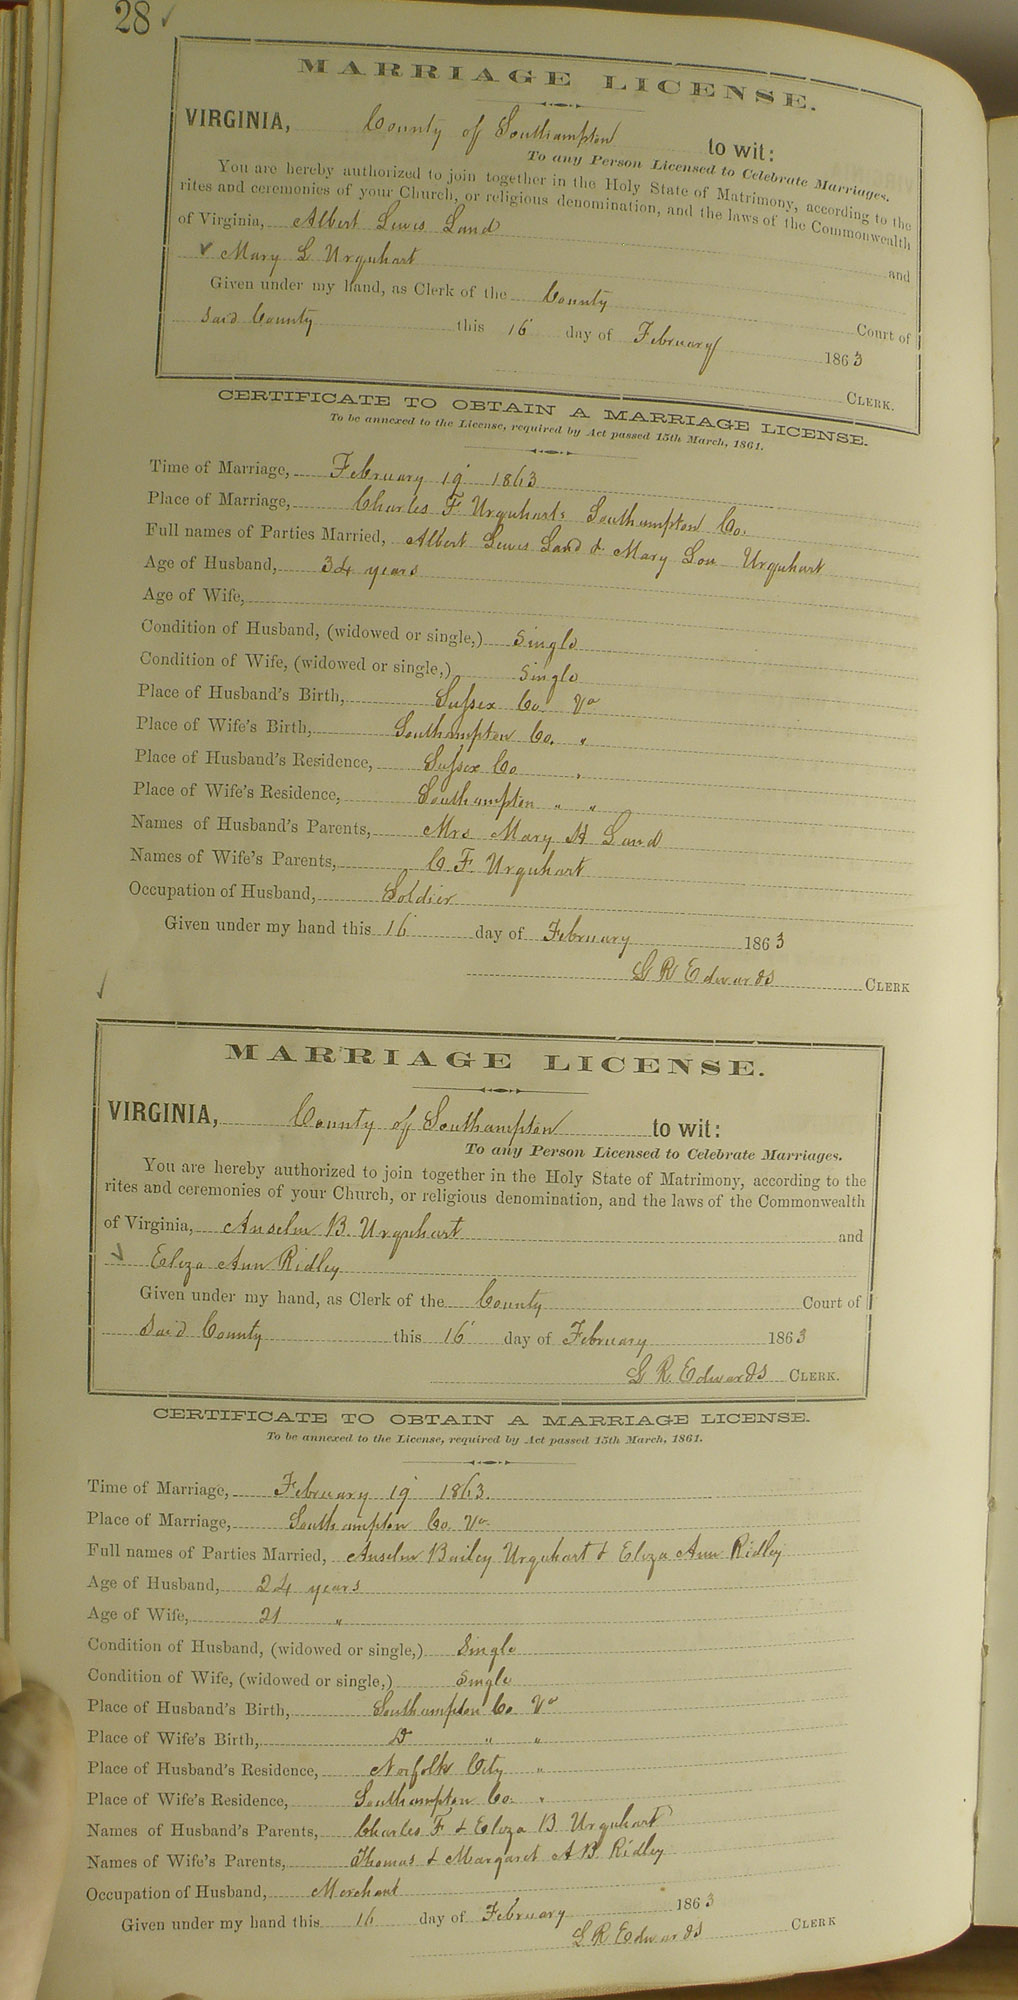 28 ✓
MARRIAGE LICENSE.
VIRGINIA, County of Southampton to wit:
To any Person Licensed to Celebrate Marriages.
You are hereby authorized to join together in the Holy State of Matrimony, according to the
rites and ceremonies of your Church, or religious denomination, and the laws of the Commonwealth
of Virginia, Albert Lewis Land and
✓ Mary L Urquhart
Given under my hand, as Clerk of the County Court of
said County this 16 day of February 1863
CLERK.
CERTIFICATE TO OBTAIN A MARRIAGE LICENSE.
To be annexed to the License, required by Act passed 15th March, 1861.
Time of Marriage, February 19 1863
Place of Marriage, Charles F Urquharts Southampton Co.
Full names of Parties Married, Albert Lewis Land & Mary Lou Urquhart
Age of Husband, 34 years
Age of Wife,
Condition of Husband, (widowed or single,) Single
Condition of Wife, (widowed or single,) Single
Place of Husband's Birth, Sussex Co. Va
Place of Wife's Birth, Southampton Co. "
Place of Husband's Residence, Sussex Co "
Place of Wife's Residence, Southampton " "
Names of Husband's Parents, Mrs Mary H Land
Names of Wife's Parents, C. F. Urquhart
Occupation of Husband, Soldier
Given under my hand this 16 day of February 1863
L R Edwards CLERK
✓
MARRIAGE LICENSE.
VIRGINIA, County of Southampton to wit:
To any Person Licensed to Celebrate Marriages.
You are hereby authorized to join together in the Holy State of Matrimony, according to the
rites and ceremonies of your Church, or religious denomination, and the laws of the Commonwealth
of Virginia, Anselm B Urquhart and
✓ Eliza Ann Ridley
Given under my hand, as Clerk of the County Court of
said County this 16 day of February 1863
L R Edwards CLERK.
CERTIFICATE TO OBTAIN A MARRIAGE LICENSE.
To be annexed to the License, required by Act passed 15th March, 1861.
Time of Marriage, February 19 1863.
Place of Marriage, Southampton Co. Va.
Full names of Parties Married, Anselm Bailey Urquhart & Eliza Ann Ridley
Age of Husband, 24 years
Age of Wife, 21 "
Condition of Husband, (widowed or single,) Single
Condition of Wife, (widowed or single,) Single
Place of Husband's Birth, Southampton Co. Va
Place of Wife's Birth, Do " "
Place of Husband's Residence, Norfolk City "
Place of Wife's Residence, Southampton Co. "
Names of Husband's Parents, Charles F & Eliza B Urquhart
Names of Wife's Parents, Thomas & Margaret A B Ridley
Occupation of Husband, Merchant
Given under my hand this 16 day of February 1863
L R Edwards CLERK